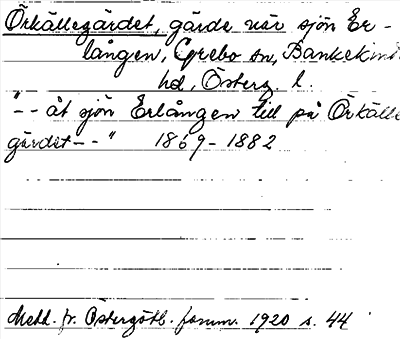 Örkällegärdet, gärde när sjön Er-
lången, Grebo sn, Bankekinds
hd, Österg. l.
"-- åt sjön Erlången till på Örkälle
gärdet--" 1869-1882
Medd. fr. Östergötl. fornm. 1920 s. 44